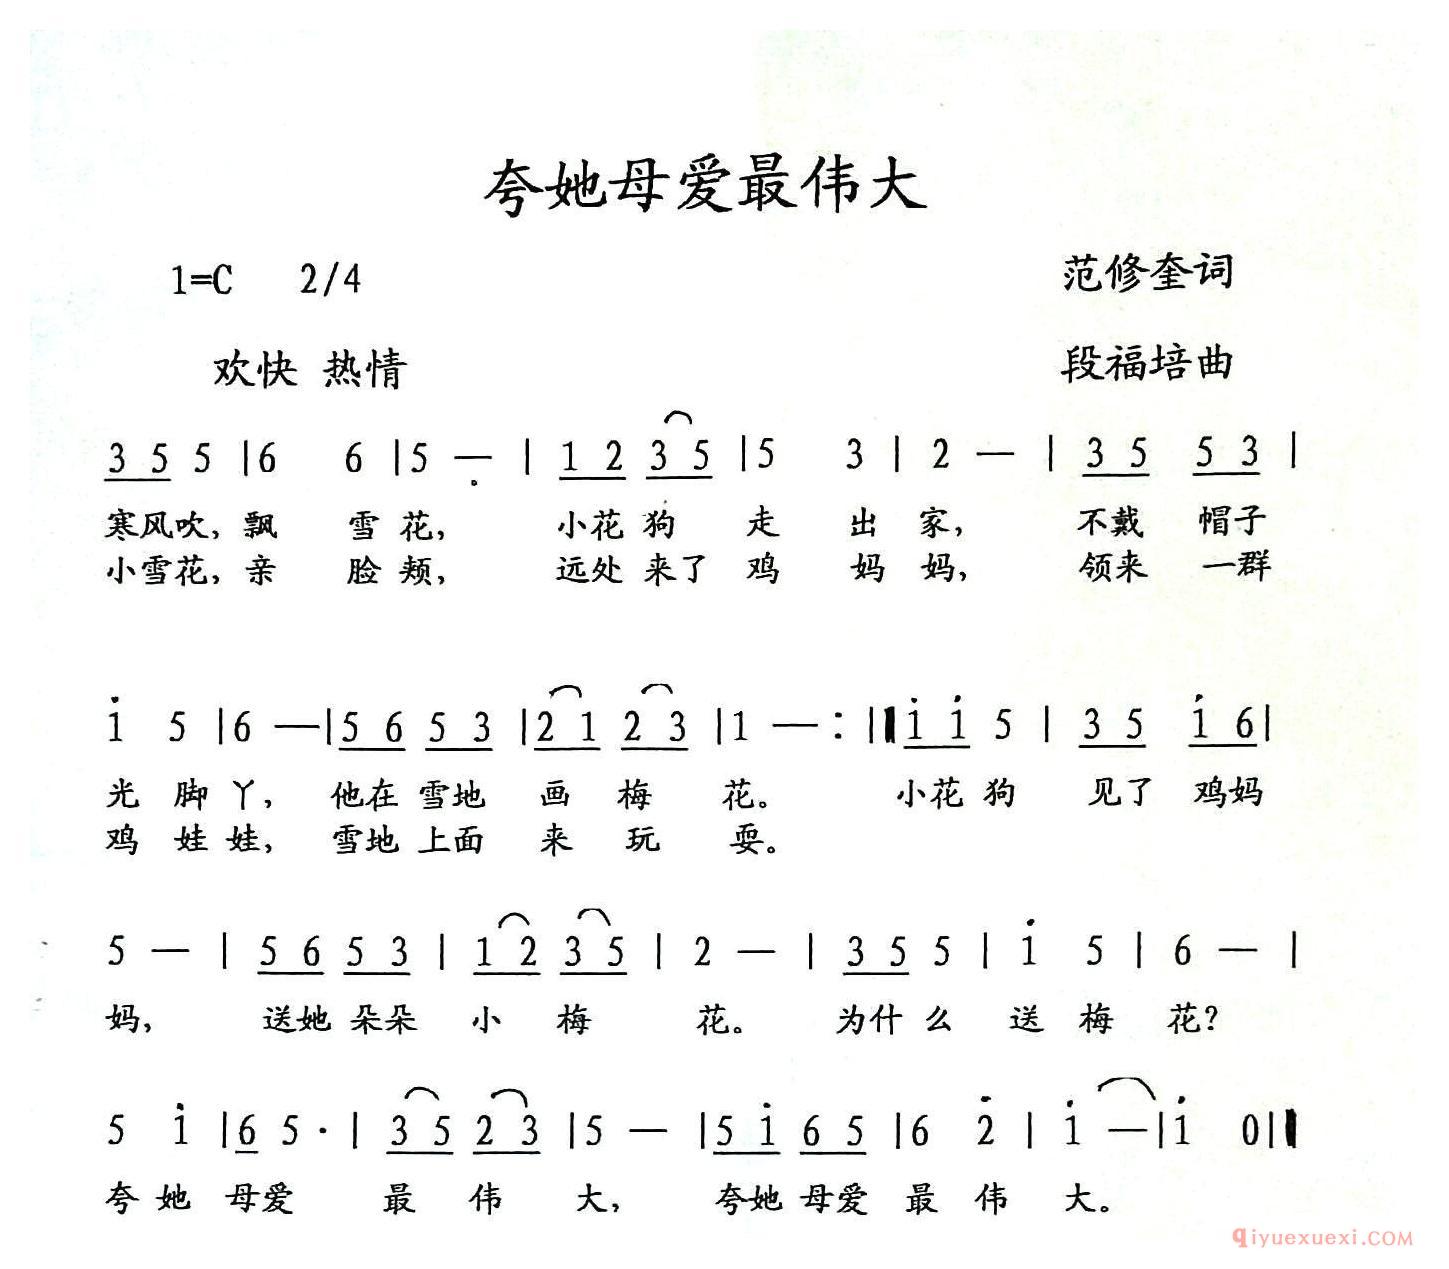 夸她母爱最伟大
1=C 2/4 范修奎词
欢快 热情 段福培曲
3 5 5 |6 6 |5 — | 1 2 3 5 |5 3 | 2 — | 3 5 5 3 |
寒风吹,飘 雪 花, 小花 狗 走 出 家, 不戴 帽子
小雪花,亲 脸 颊, 远处 来了 鸡 妈 妈, 领来 一群
i 5 |6 —|5 6 5 3 |2 1 2 3 |1 —:‖ i i 5 | 3 5 i 6|
光 脚 丫, 他在 雪地 画 梅 花。 小花 狗 见了 鸡妈
鸡 娃 娃, 雪地 上面 来 玩 耍。
5 — | 5 6 5 3 | 1 2 3 5 | 2 — | 3 5 5 | i 5 | 6 — |
妈, 送她 朵朵 小 梅 花。 为什 么 送 梅 花?
5 i |6 5· | 3 5 2 3 |5 — |5 i 6 5 |6 2 | i —|i 0‖
夸 她 母爱 最 伟 大, 夸她 母爱 最 伟 大。
qiyuexuexi.COM